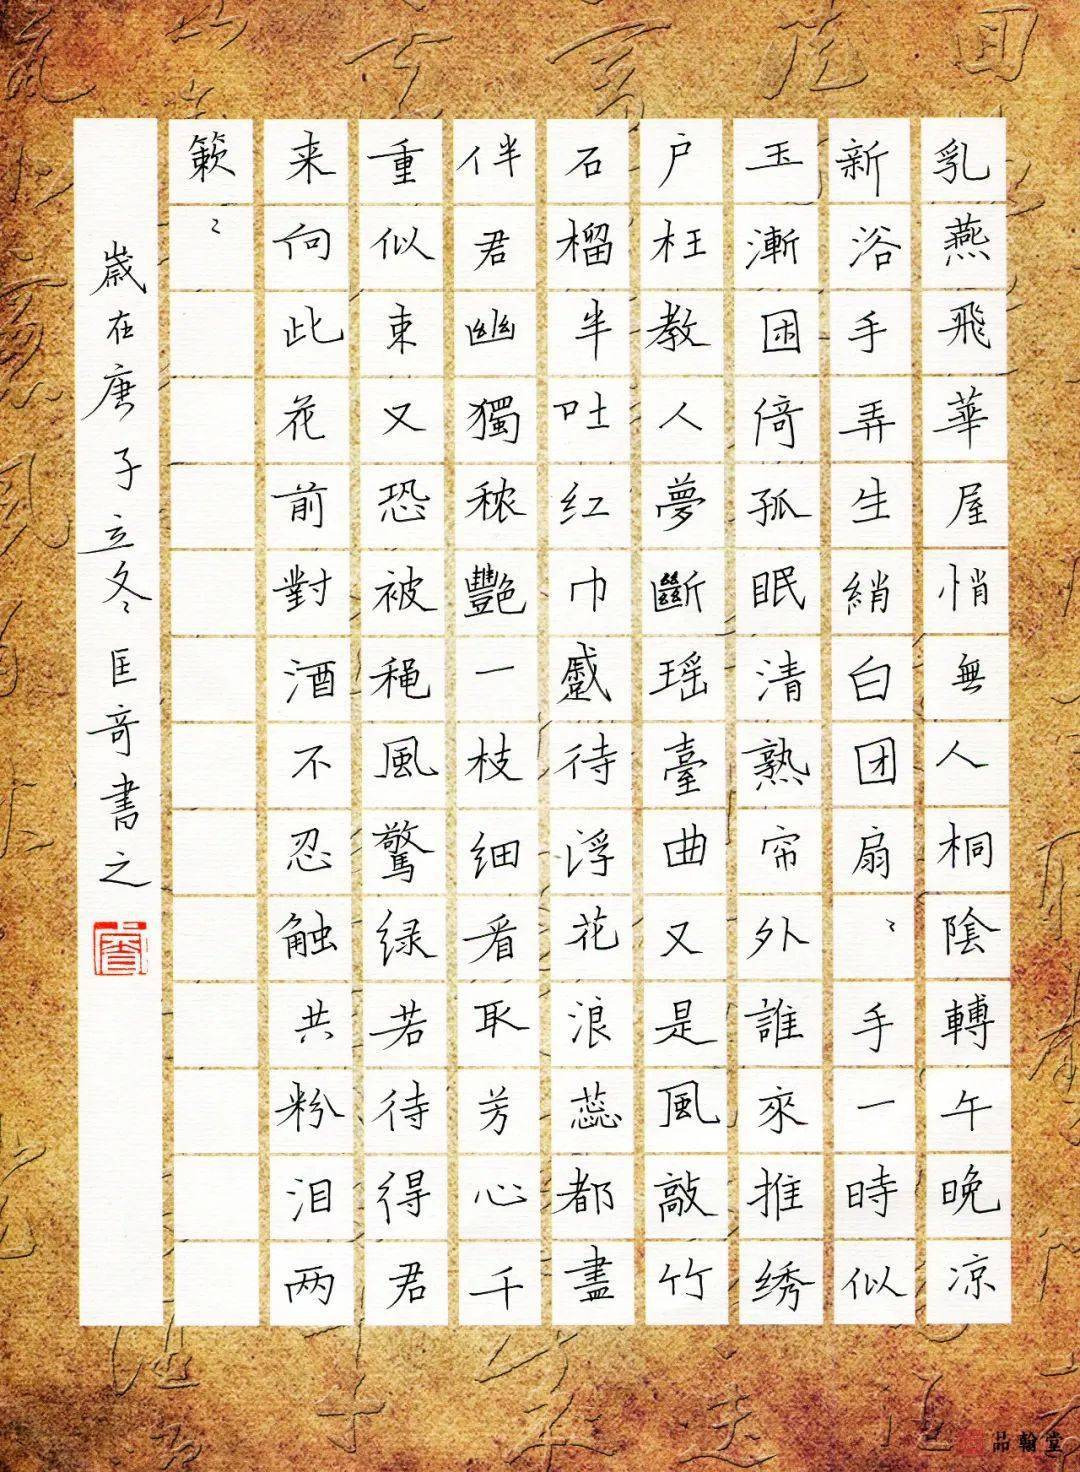 乳燕飛華屋悄無人桐陰轉午晚凉
新浴手弄生綃白团扇〻手一時似
玉漸困倚孤眠清熟帘外誰來推绣
户枉教人夢斷瑶臺曲又是風敲竹
石榴半吐红巾蹙待浮花浪蕊都盡
伴君幽獨秾艷一枝细看取芳心千
重似束又恐被秾風驚绿若待得君
来向此花前對酒不忍触共粉泪两
簌〻
歲在庚子立冬〻匡奇書之
品翰堂